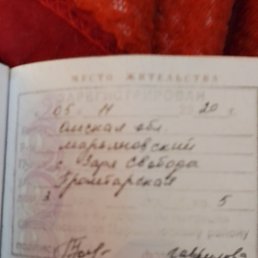 МЕСТО ЖИТЕЛЬСТВА
ЗАРЕГИСТРИРОВАН
05 11 2020 г.
Омская обл
Марьяновский
с Заря Свободы
Пролетарская
3 5
району
Гаврилова